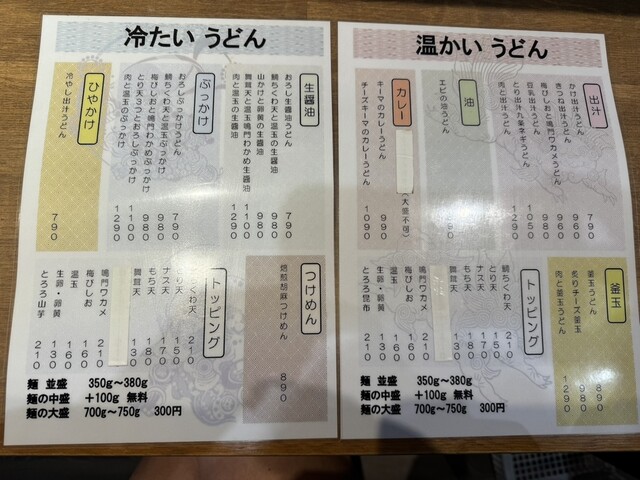 冷たい うどん
生醤油
おろし生醤油うどん 790
鯛ちくわ天と温玉の生醤油 980
山かけと卵黄の生醤油 980
舞茸天と温玉鳴門わかめ生醤油 1100
肉と温玉の生醤油 1290
ぶっかけ
おろしぶっかけうどん 790
鯛ちくわ天と温玉ぶっかけ 980
梅びしおと鳴門わかめぶっかけ 980
とり天3つとおろしぶっかけ 1100
肉と温玉のぶっかけ 1290
ひやかけ
冷やし出汁うどん 790
つけめん
焙煎胡麻つけめん 890
トッピング
ちくわ天 210
とり天 150
ナス天 170
もち天 180
舞茸天 130
鳴門ワカメ 210
梅びしお 160
温玉 160
生卵・卵黄 130
とろろ山芋 210
麺 並盛 350g～380g
麺の中盛 +100g 無料
麺の大盛 700g～750g 300円
温かい うどん
出汁
かけ出汁うどん 790
きつね出汁うどん 960
梅びしおと鳴門ワカメうどん 960
豆乳出汁うどん 980
とり出汁九条ネギうどん 1050
肉と出汁うどん 1290
油
エビの油うどん
カレー
(大盛不可)
キーマのカレーうどん 990
チーズキーマのカレーうどん 1090
釜玉
釜玉うどん 890
炙りチーズ釜玉 980
肉と釜玉うどん 1290
トッピング
鯛ちくわ天 210
とり天 150
ナス天 170
もち天 180
舞茸天 130
鳴門ワカメ 210
梅びしお 160
温玉 160
生卵・卵黄 130
とろろ昆布 210
麺 並盛 350g～380g
麺の中盛 +100g 無料
麺の大盛 700g～750g 300円